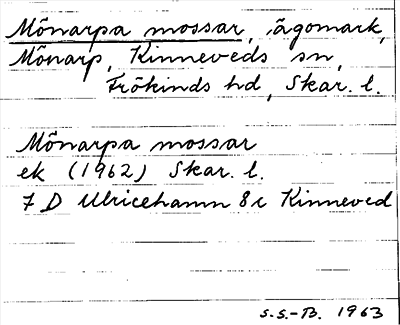 Mönarpa mossar, ägomark,
Mönarp, Kinneveds sn,
Frökinds hd, Skar. l.
Mönarpa mossar
ek (1962) Skar. l.
7 D Ulricehamn 8 i Kinneved
S.S.-B. 1963